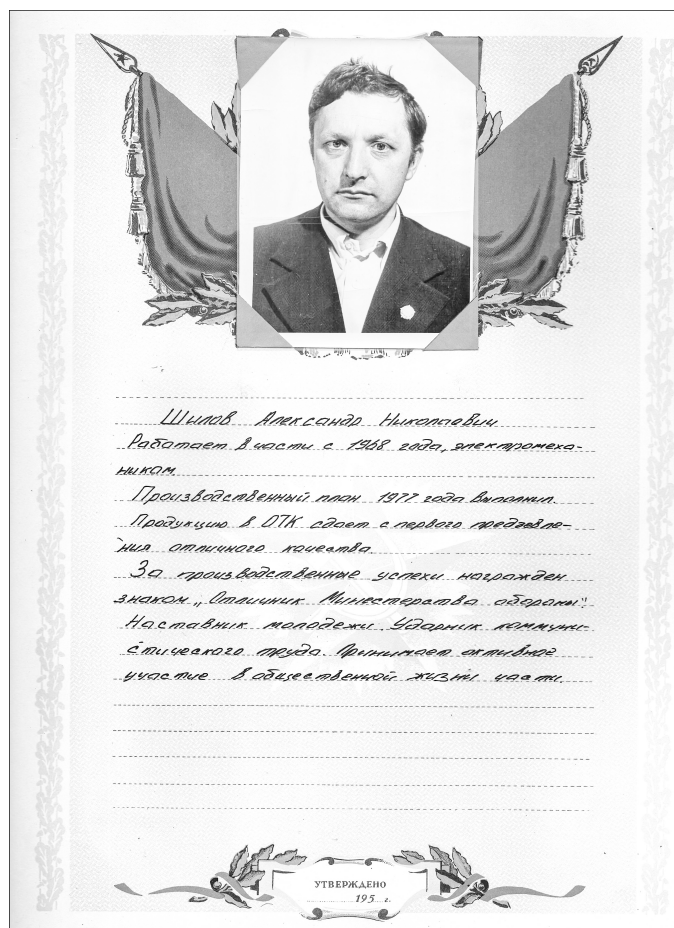 Шилов Александр Николаевич
Работает в части с 1968 года, электромеха-
ником.
Производственный план 1977 года выполнил.
Продукцию в ОТК сдает с первого предъявле-
ния отличного качества.
За производственные успехи награжден
знаком „Отличник Министерства обороны".
Наставник молодежи. Ударник коммуни-
стического труда. Принимает активное
участие в общественной жизни части.
УТВЕРЖДЕНО
195 г.